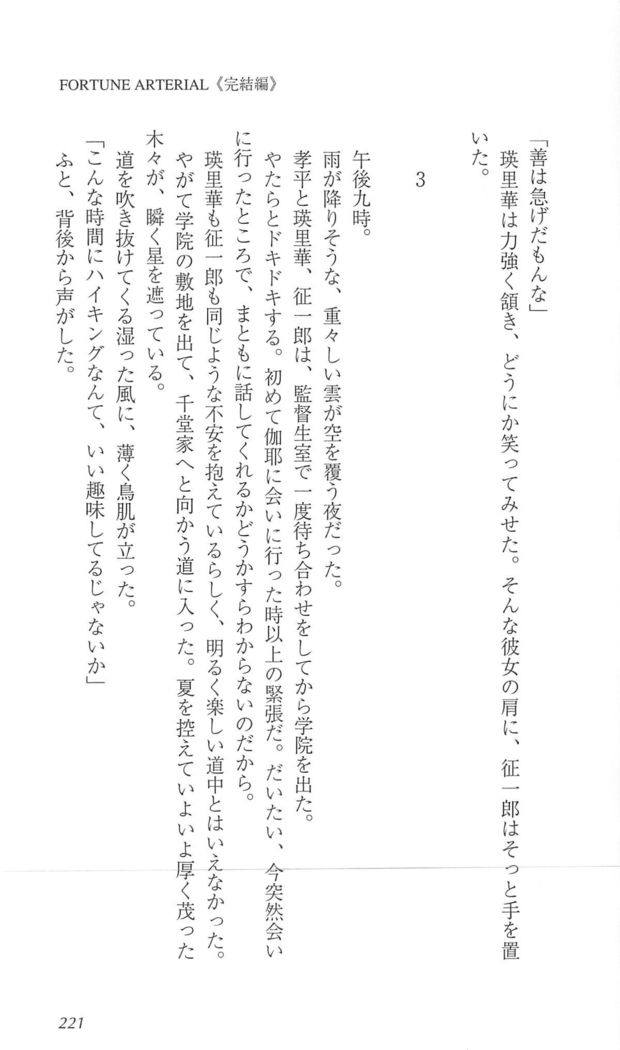 FORTUNE ARTERIAL《完結編》
「善は急げだもんな」
瑛里華は力強く頷き、どうにか笑ってみせた。そんな彼女の肩に、征一郎はそっと手を置
いた。
3
午後九時。
雨が降りそうな、重々しい雲が空を覆う夜だった。
孝平と瑛里華、征一郎は、監督生室で一度待ち合わせをしてから学院を出た。
やたらとドキドキする。初めて伽耶に会いに行った時以上の緊張だ。だいたい、今突然会い
に行ったところで、まともに話してくれるかどうかすらわからないのだから。
瑛里華も征一郎も同じような不安を抱えているらしく、明るく楽しい道中とはいえなかった。
やがて学院の敷地を出て、千堂家へと向かう道に入った。夏を控えていよいよ厚く茂った
木々が、瞬く星を遮っている。
道を吹き抜けてくる湿った風に、薄く鳥肌が立った。
「こんな時間にハイキングなんて、いい趣味してるじゃないか」
ふと、背後から声がした。
221